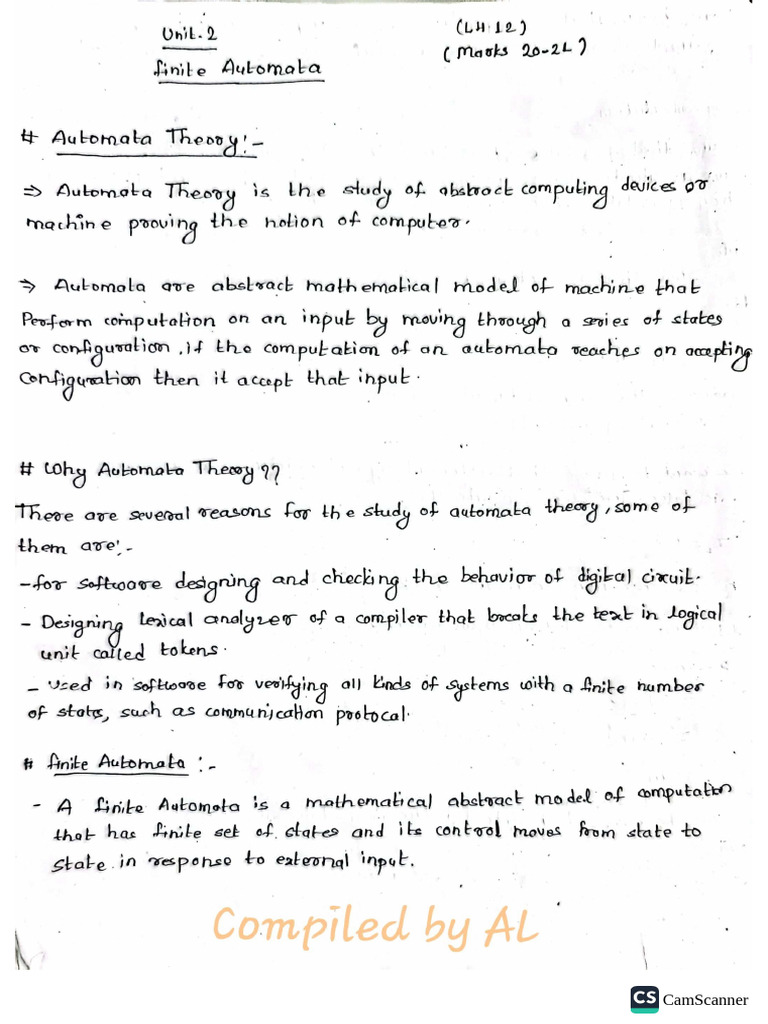 Unit-2
(LH 12)
(Marks 20-22)
finite Automata
# Automata Theory:-
⇒ Automata Theory is the study of abstract computing devices or
machine proving the notion of computer.
⇒ Automata are abstract mathematical model of machine that
Perform computation on an input by moving through a series of states
or configuration, if the computation of an automata reaches on accepting
Configuration then it accept that input.
# Why Automata Theory??
There are several reasons for the study of automata theory, some of
them are:-
- for software designing and checking the behavior of digital circuit.
- Designing Lexical analyzer of a compiler that breaks the text in logical
unit called tokens.
- Used in software for verifying all kinds of systems with a finite number
of states, such as communication protocal.
# finite Automata :-
- A finite Automata is a mathematical abstract model of computation
that has finite set of states and its control moves from state to
state in response to external input.
Compiled by AL
CS CamScanner